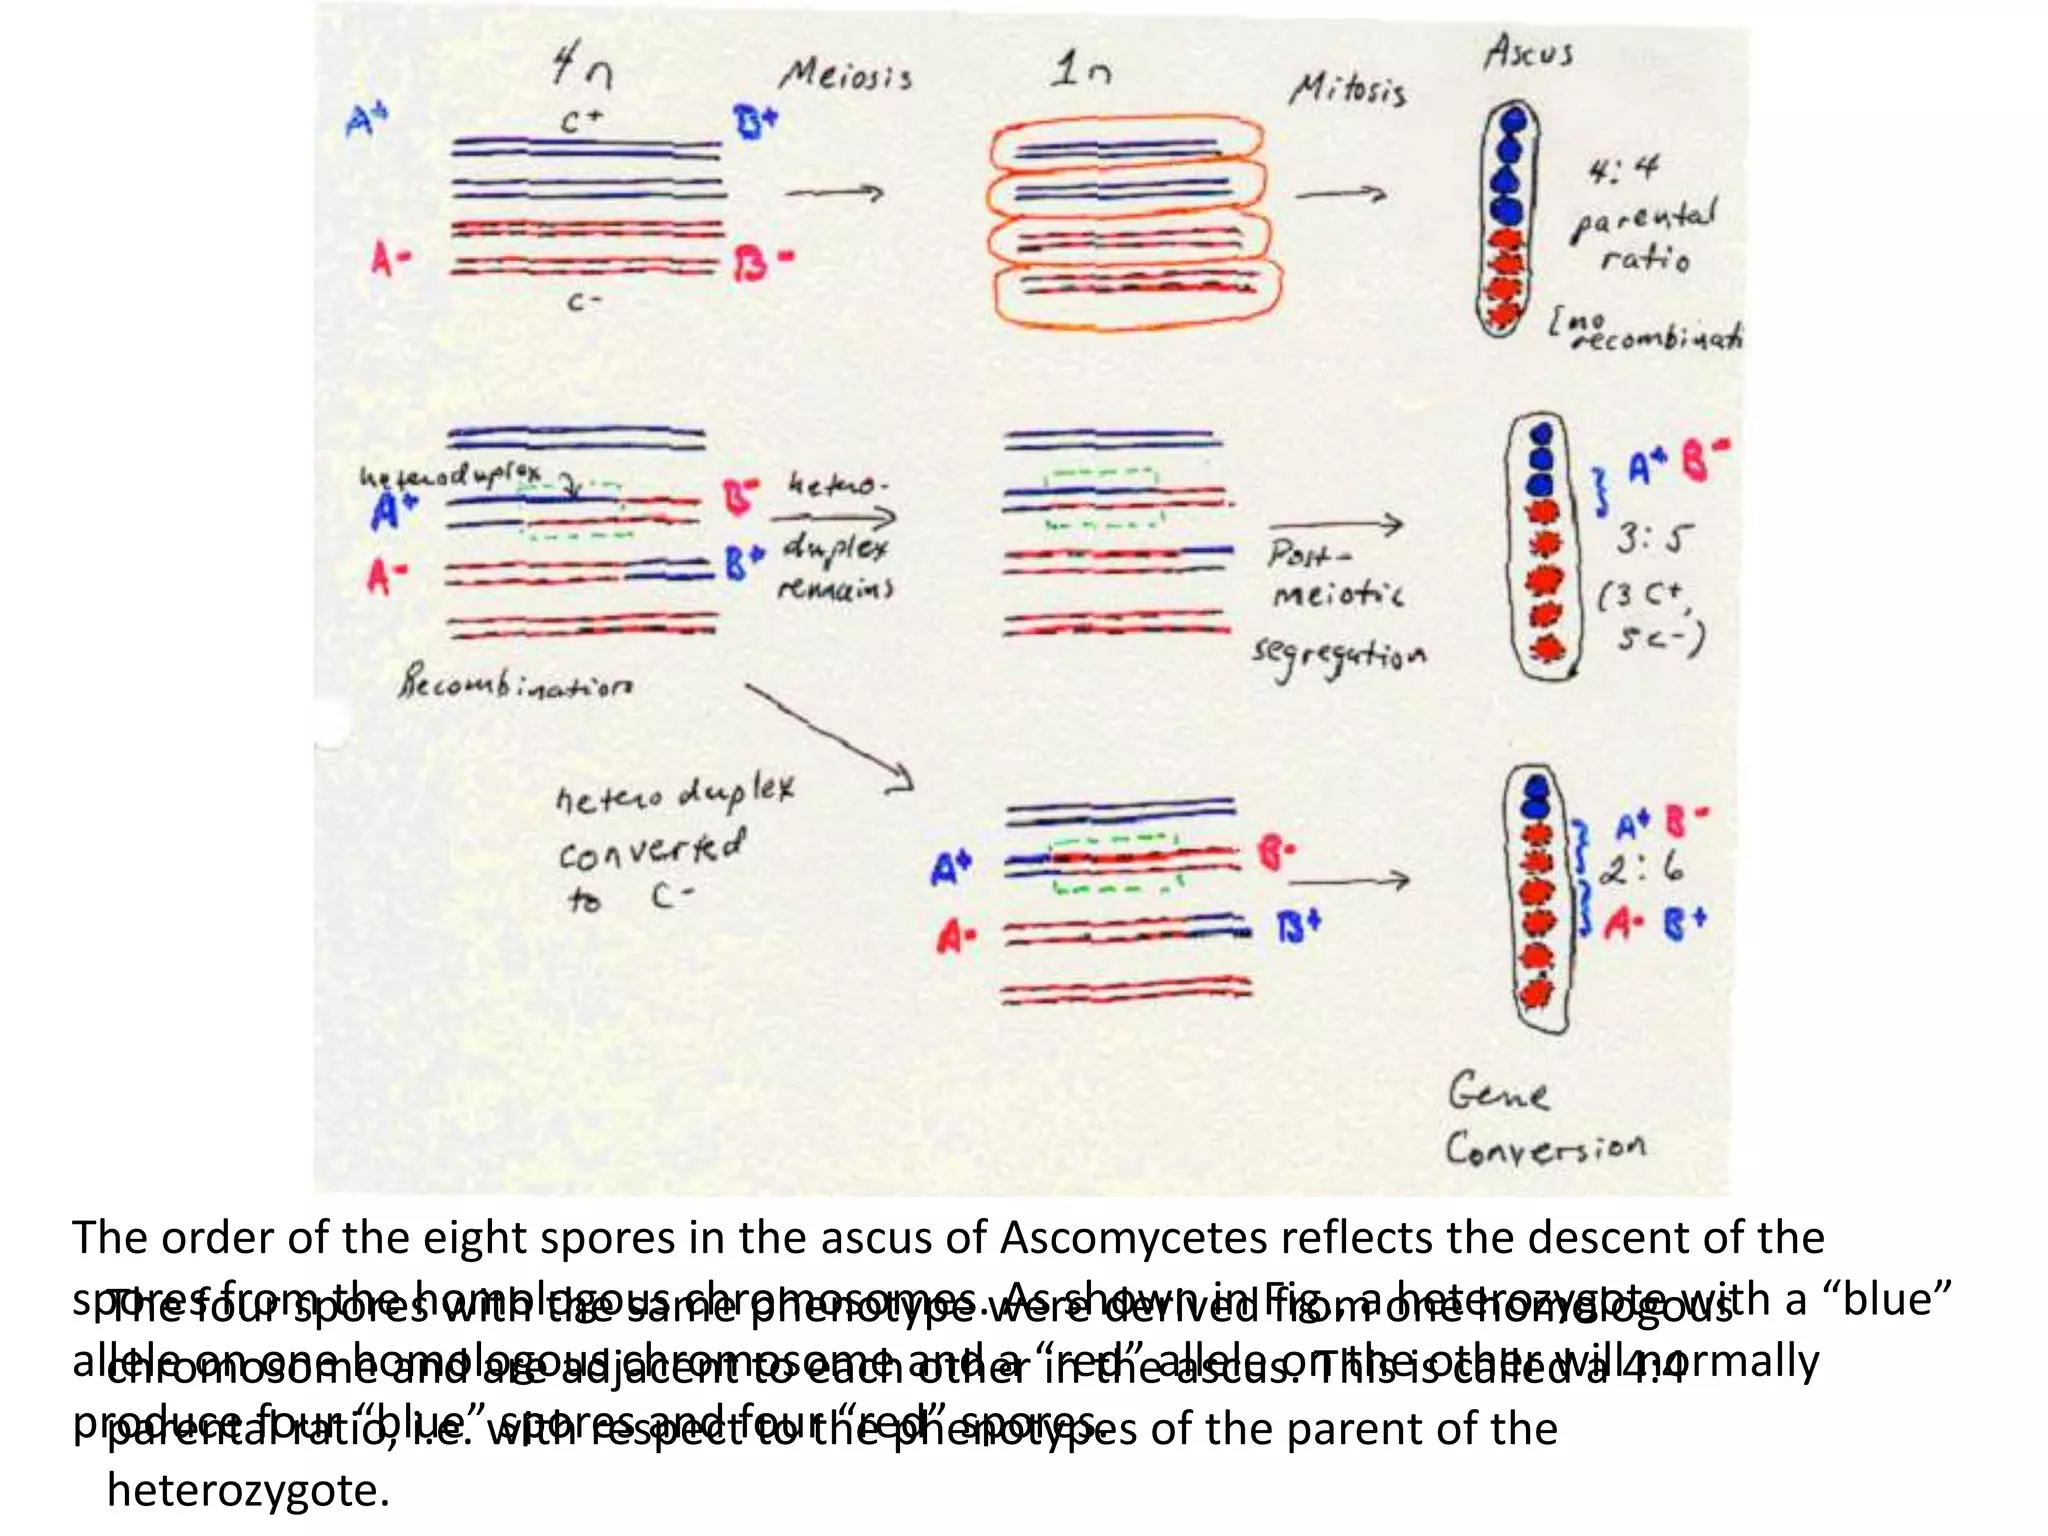 4n Meiosis 1n Mitosis Ascus
A+ C+ B+
4:4
parental
ratio
A- B-
C-
[no
recombinati
heteroduplex
A+ B-
A- B+
hetero-
duplex
remains
Post-
meiotic
segregation
A+ B-
3:5
(3 C+,
5 C-)
Recombination
hetero duplex
converted
to C-
A+ B-
A- B+
A+ B-
2:6
A- B+
Gene
Conversion
The order of the eight spores in the ascus of Ascomycetes reflects the descent of the
spores from the homologous chromosomes. As shown in Fig., a heterozygote with a “blue”
allele on one homologous chromosome and a “red” allele on the other will normally
produce four “blue” spores and four “red” spores.
The four spores with the same phenotype were derived from one homologous
chromosome and are adjacent to each other in the ascus. This is called a 4:4
parental ratio, i.e. with respect to the phenotypes of the parent of the
heterozygote.